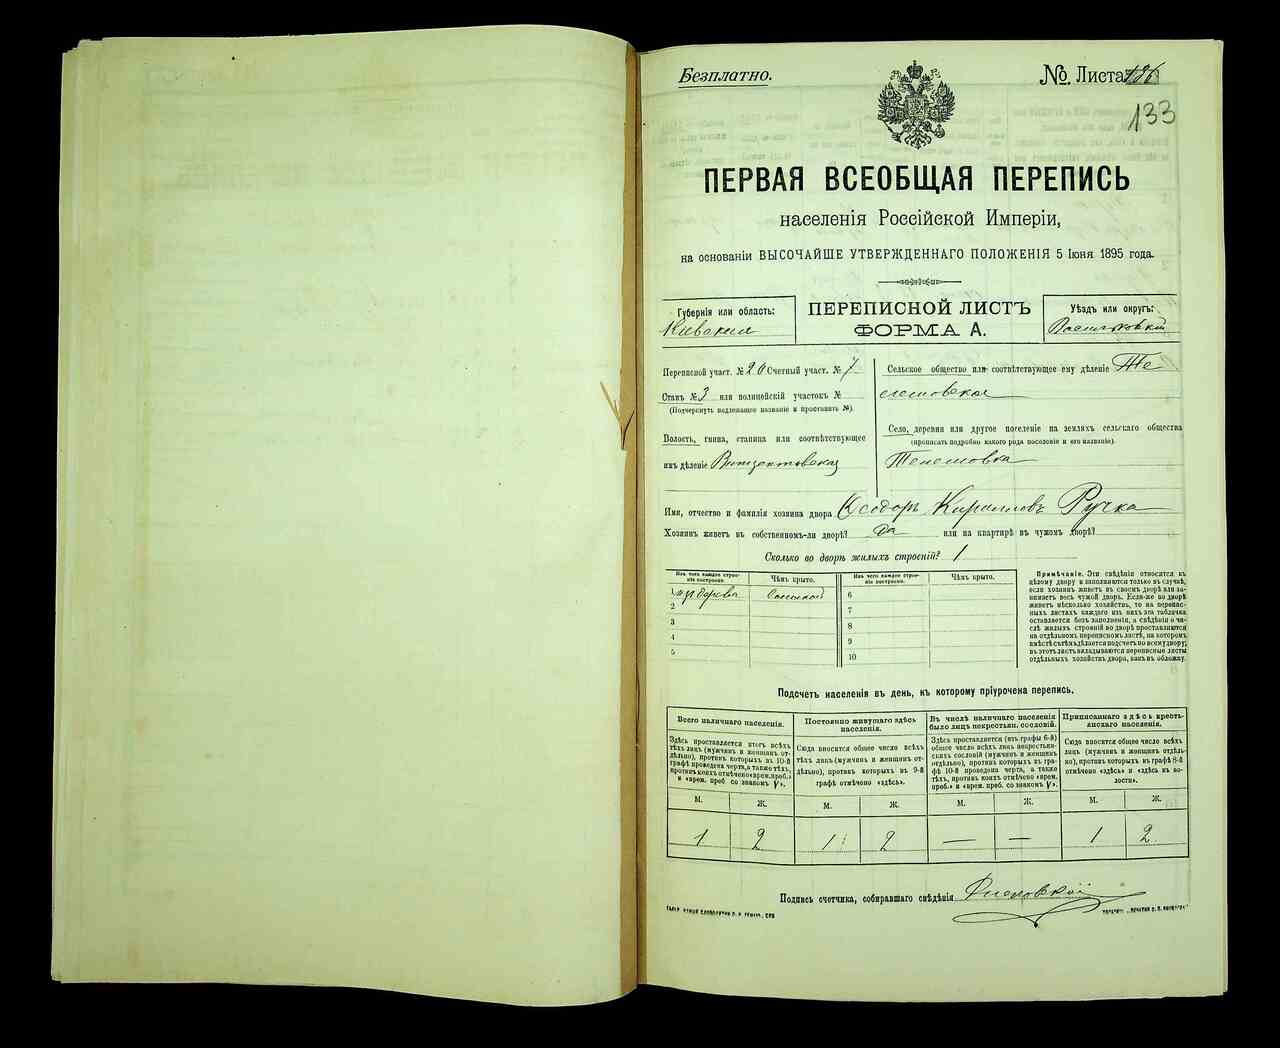 Безплатно.
№ Листа 186
133
ПЕРВАЯ ВСЕОБЩАЯ ПЕРЕПИСЬ
населенія Россійской Имперіи,
на основаніи ВЫСОЧАЙШЕ УТВЕРЖДЕННАГО ПОЛОЖЕНІЯ 5 Іюня 1895 года.
Губернія или область:
Кіевская
ПЕРЕПИСНОЙ ЛИСТЪ
ФОРМА А.
Уѣздъ или округъ:
Васильковскій
Переписной участ. № 20 Счетный участ. № 7
Станъ № 3 или полицейскій участокъ №
(Подчеркнуть подлежащее названіе и проставить №).
Волость, гмина, станица или соотвѣтствующее
имъ дѣленіе Винцентовская
Сельское общество или соотвѣтствующее ему дѣленіе Те
лешовская
Село, деревня или другое поселеніе на земляхъ сельскаго общества
(прописать подробно какого рода поселеніе и его названіе).
Телешовка
Имя, отчество и фамилія хозяина двора Ѳеодоръ Кирилловъ Ручка
Хозяинъ живетъ въ собственномъ-ли дворѣ? да или на квартирѣ въ чужомъ дворѣ?
Сколько во дворѣ жилыхъ строеній? 1
Изъ чего каждое строе-
ніе построено.
Чѣмъ крыто.
Изъ чего каждое строе-
ніе построено.
Чѣмъ крыто.
дерева Соломой
2
3
4
5
6
7
8
9
10
Примѣчаніе. Эти свѣдѣнія относятся къ
цѣлому двору и заполняются только въ случаѣ,
если хозяинъ живетъ въ своемъ дворѣ или за-
нимаетъ весь чужой дворъ. Если-же во дворѣ
живетъ нѣсколько хозяйствъ, то на перепис-
ныхъ листахъ каждаго изъ нихъ эта табличка
оставляется безъ заполненія, а свѣдѣнія о чи-
слѣ жилыхъ строеній во дворѣ проставляются
на отдѣльномъ переписномъ листѣ, на которомъ
вмѣстѣ съ тѣмъ дѣлается подсчетъ по всему двору;
въ этотъ листъ вкладываются переписные листы
отдѣльныхъ хозяйствъ двора, какъ въ обложку.
Подсчетъ населенія въ день, къ которому пріурочена перепись.
Всего наличнаго населенія.
Здѣсь проставляется итогъ всѣхъ
тѣхъ лицъ (мужчинъ и женщинъ от-
дѣльно), противъ которыхъ въ 10-й
графѣ проведена черта, а также тѣхъ,
противъ коихъ отмѣчено «врем. преб.»
и «врем. преб. со знакомъ V».
Постоянно живущаго здѣсь
населенія.
Сюда вносится общее число всѣхъ
тѣхъ лицъ (мужчинъ и женщинъ от-
дѣльно), противъ которыхъ въ 9-й
графѣ отмѣчено «здѣсь».
Въ числѣ наличнаго населенія
было лицъ некрестьян. сословій.
Здѣсь проставляется (изъ графы 6-й)
общее число всѣхъ лицъ некрестьян-
скихъ сословій (мужчинъ и женщинъ
отдѣльно), противъ которыхъ въ гра-
фѣ 10-й проведена черта, а также
тѣхъ, противъ коихъ отмѣчено «врем.
преб.» и «врем. преб. со знакомъ V».
Приписаннаго здѣсь кресть-
янскаго населенія.
Сюда вносится общее число всѣхъ
лицъ (мужчинъ и женщинъ отдѣль-
но), противъ которыхъ въ графѣ 8-й
отмѣчено «здѣсь» и «здѣсь въ во-
лости».
М. Ж. М. Ж. М. Ж. М. Ж.
1 2 1 2 — — 1 2
Подпись счетчика, собиравшаго свѣдѣнія